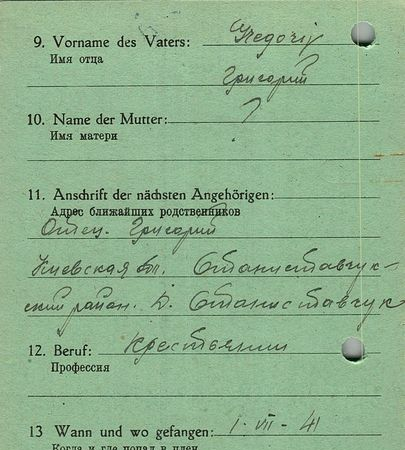 9. Vorname des Vaters: Gregorij
Имя отца
Григорий
10. Name der Mutter: ?
Имя матери
11. Anschrift der nächsten Angehörigen:
Адрес ближайших родственников
Отец. Григорий
Киевская обл. Станиславчук-
ский район. д. Станиславчук
12. Beruf: Крестьянин
Профессия
13 Wann und wo gefangen: 1. VII - 41
Когда и где попал в плен